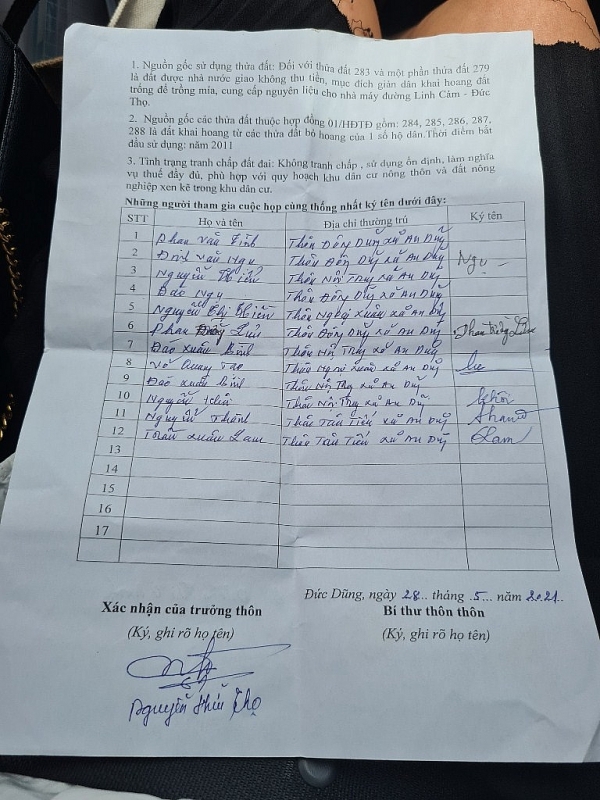 1. Nguồn gốc sử dụng thửa đất: Đối với thửa đất 283 và một phần thửa đất 279
là đất được nhà nước giao không thu tiền, mục đích giãn dân khai hoang đất
trồng để trồng mía, cung cấp nguyên liệu cho nhà máy đường Linh Cảm - Đức
Thọ.
2. Nguồn gốc các thửa đất thuộc hợp đồng 01/HĐTĐ gồm: 284, 285, 286, 287,
288 là đất khai hoang từ các thửa đất bỏ hoang của 1 số hộ dân.Thời điểm bắt
đầu sử dụng: năm 2011
3. Tình trạng tranh chấp đất đai: Không tranh chấp , sử dụng ổn định, làm nghĩa
vụ thuế đầy đủ, phù hợp với quy hoạch khu dân cư nông thôn và đất nông
nghiệp xen kẽ trong khu dân cư.
Những người tham gia cuộc họp cùng thống nhất ký tên dưới đây:
STT Họ và tên Địa chỉ thường trú Ký tên
1 Phan Văn Thôn Đông Dũng xã An Dũng
2 Đinh Văn Ngụ Thôn Đông Dũng xã An Dũng Ngụ
3 Nguyễn Thôn Nội Thụy xã An Dũng
4 Đào Ngụ Thôn Đông Dũng xã An Dũng
5 Nguyễn Thị Hiền Thôn Ngoại Xuân xã An Dũng
6 Phan Thôn Đông Dũng xã An Dũng
7 Đào Xuân Bình Thôn Nội Thụy xã An Dũng
8 Võ Quang Thôn Ngoại Xuân xã An Dũng
9 Đào Xuân Bình Thôn Nội Thụy xã An Dũng
10 Nguyễn Thôn Nội Thụy xã An Dũng
11 Nguyễn Thành Thôn Tân Tiến xã An Dũng Thành
12 Trần Xuân Lam Thôn Tân Tiến xã An Dũng Lam
13
14
15
16
17
Đức Dũng, ngày 28.. tháng .5... năm 2021..
Xác nhận của trưởng thôn Bí thư thôn thôn
(Ký, ghi rõ họ tên) (Ký, ghi rõ họ tên)
Nguyễn Hữu Thọ